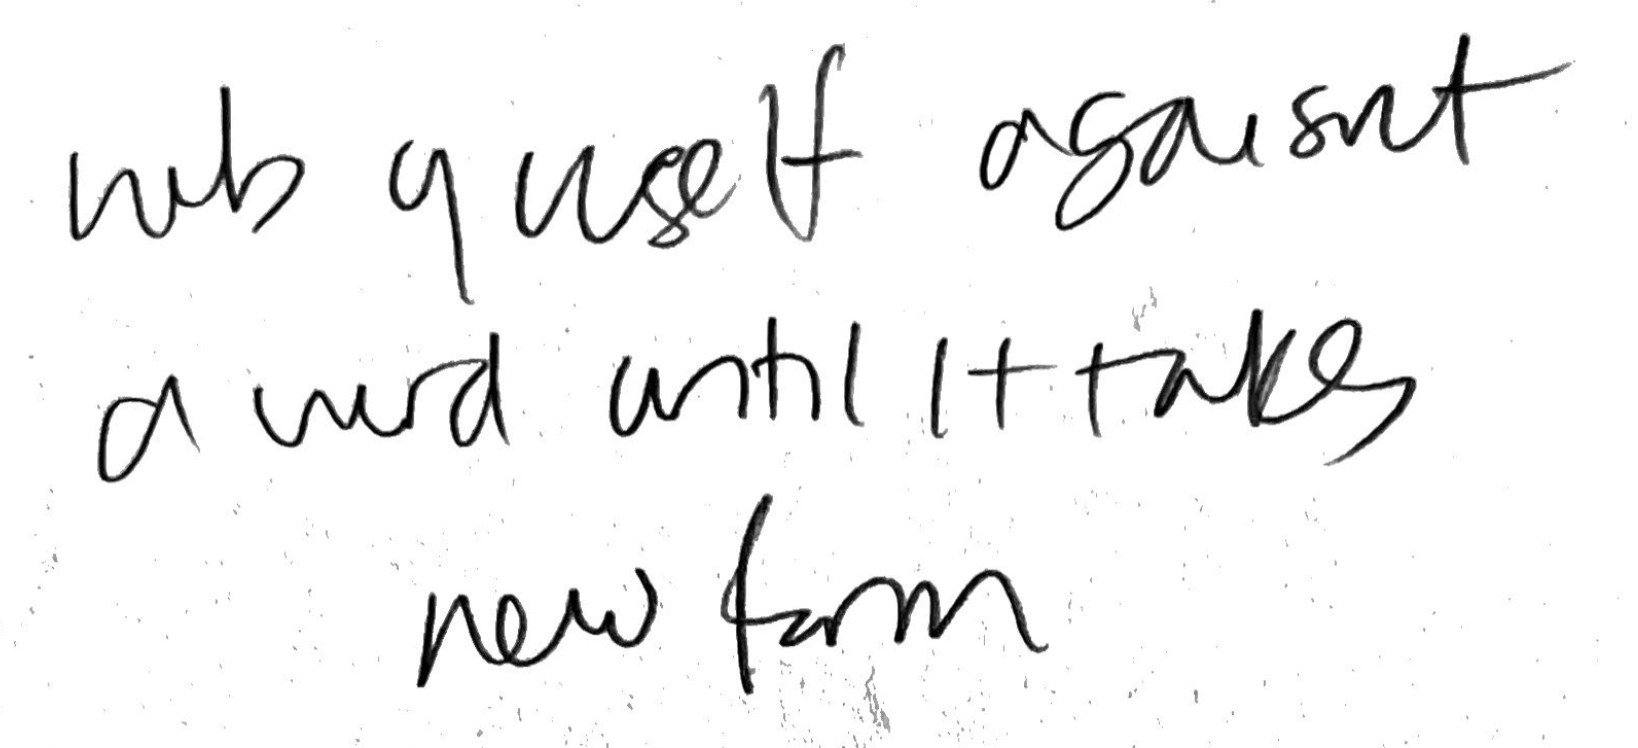 rub yourself agaisnt
a word until it takes
new form